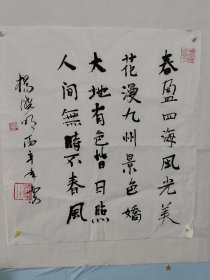 春盈四海風光美
花漫九州景色嬌
大地有色皆日照
人间無時不春風